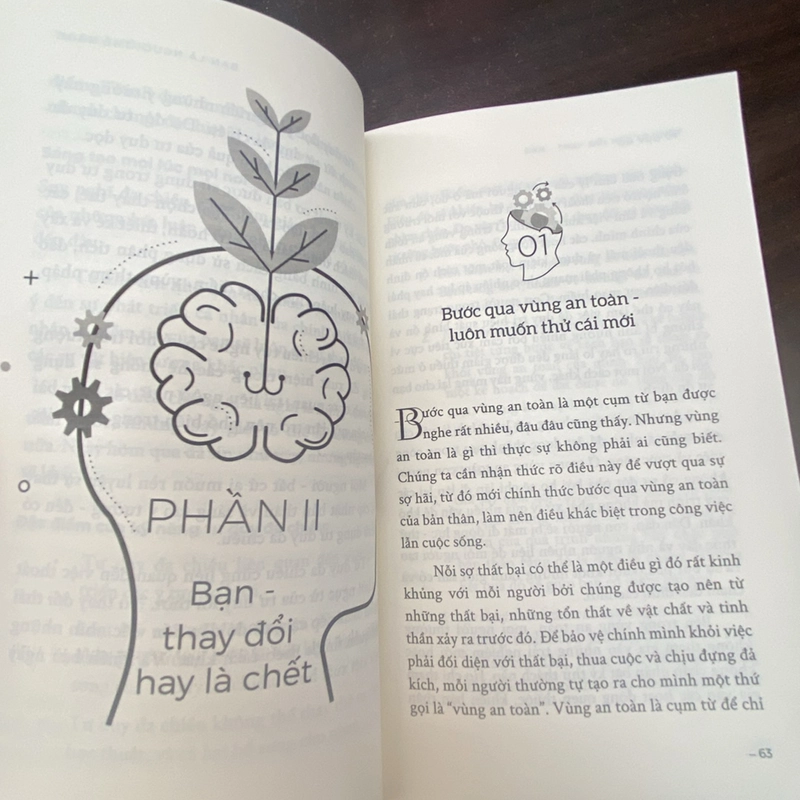 PHẦN II
Bạn -
thay đổi
hay là chết
01
Bước qua vùng an toàn -
luôn muốn thử cái mới
Bước qua vùng an toàn là một cụm từ bạn được
nghe rất nhiều, đâu đâu cũng thấy. Nhưng vùng
an toàn là gì thì thực sự không phải ai cũng biết.
Chúng ta cần nhận thức rõ điều này để vượt qua sự
sợ hãi, từ đó mới chính thức bước qua vùng an toàn
của bản thân, làm nên điều khác biệt trong công việc
lẫn cuộc sống.
Nỗi sợ thất bại có thể là một điều gì đó rất kinh
khủng với mỗi người bởi chúng được tạo nên từ
những thất bại, những tổn thất về vật chất và tinh
thần xảy ra trước đó. Để bảo vệ chính mình khỏi việc
phải đối diện với thất bại, thua cuộc và chịu đựng đả
kích, mỗi người thường tự tạo ra cho mình một thứ
gọi là “vùng an toàn”. Vùng an toàn là cụm từ để chỉ
– 63